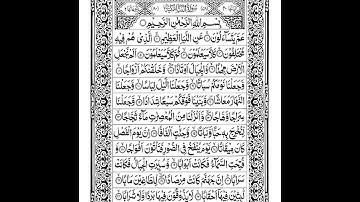 بِسْمِ اللهِ الرَّحْمٰنِ الرَّحِيْمِ
عَمَّ يَتَسَآءَلُوْنَ عَنِ النَّبَاِ الْعَظِيْمِ الَّذِيْ هُمْ فِيْهِ
مُخْتَلِفُوْنَ كَلَّا سَيَعْلَمُوْنَ ثُمَّ كَلَّا سَيَعْلَمُوْنَ اَلَمْ نَجْعَلِ
الْاَرْضَ مِهٰدًا وَّالْجِبَالَ اَوْتَادًا وَّخَلَقْنٰكُمْ اَزْوَاجًا
وَّجَعَلْنَا نَوْمَكُمْ سُبَاتًا وَّجَعَلْنَا الَّيْلَ لِبَاسًا وَّجَعَلْنَا
النَّهَارَ مَعَاشًا وَّبَنَيْنَا فَوْقَكُمْ سَبْعًا شِدَادًا وَّجَعَلْنَا
سِرَاجًا وَّهَّاجًا وَّاَنْزَلْنَا مِنَ الْمُعْصِرٰتِ مَآءً ثَجَّاجًا
لِّنُخْرِجَ بِهٖ حَبًّا وَّنَبَاتًا وَّجَنّٰتٍ اَلْفَافًا اِنَّ يَوْمَ الْفَصْلِ
كَانَ مِيْقَاتًا يَّوْمَ يُنْفَخُ فِي الصُّوْرِ فَتَاْتُوْنَ اَفْوَاجًا وَّ
فُتِحَتِ السَّمَآءُ فَكَانَتْ اَبْوَابًا وَّسُيِّرَتِ الْجِبَالُ فَكَانَتْ
سَرَابًا اِنَّ جَهَنَّمَ كَانَتْ مِرْصَادًا لِّلطَّاغِيْنَ مَاٰبًا
لّٰبِثِيْنَ فِيْهَآ اَحْقَابًا لَا يَذُوْقُوْنَ فِيْهَا بَرْدًا وَّلَا شَرَابًا